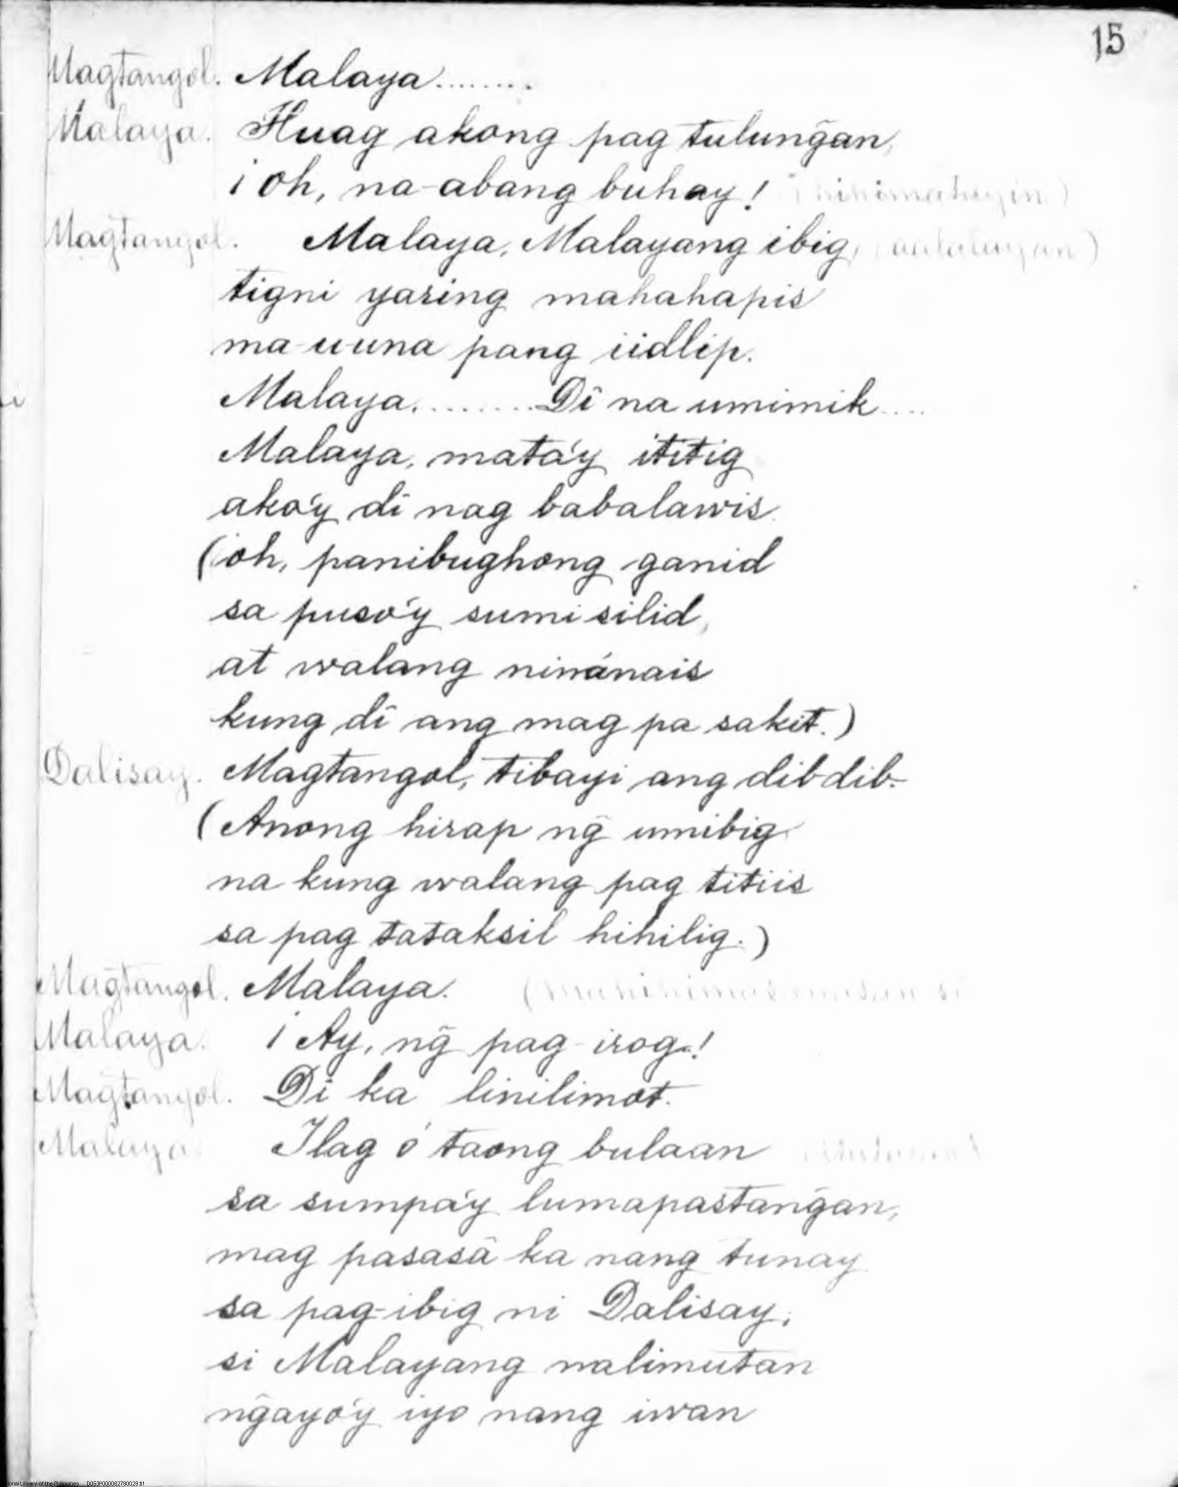 15
Magtangol. Malaya........
Malaya. Huag akong pag tulung̃an,
¡oh, na-abang buhay! (hihimatayin)
Magtangol. Malaya, Malayang ibig, (aalalayan)
tigni yaring mahahapis
ma-u-una pang iidlip.
Malaya.........Dî na umimik....
Malaya, mata'y ititig
ako'y dî nag babalawis
(¡oh, panibughong ganid
sa puso'y sumisilid,
at walang ninánais
kung dî ang mag pa sakit.)
Dalisay. Magtangol, tibayi ang dib-dib-
(Anong hirap ng̃ umibig
na kung walang pag titiis
sa pag tataksil hihilig.)
Magtangol. Malaya.
Malaya. ¡Ay, ng̃ pag-irog!
Magtangol. Di ka linilimot.
Malaya. Ilag ó taong bulaan
sa sumpa'y lumapastang̃an,
mag pasasâ ka nang tunay
sa pag-ibig ni Dalisay;
si Malayang nalimutan
ng̃ayo'y iyo nang iwan